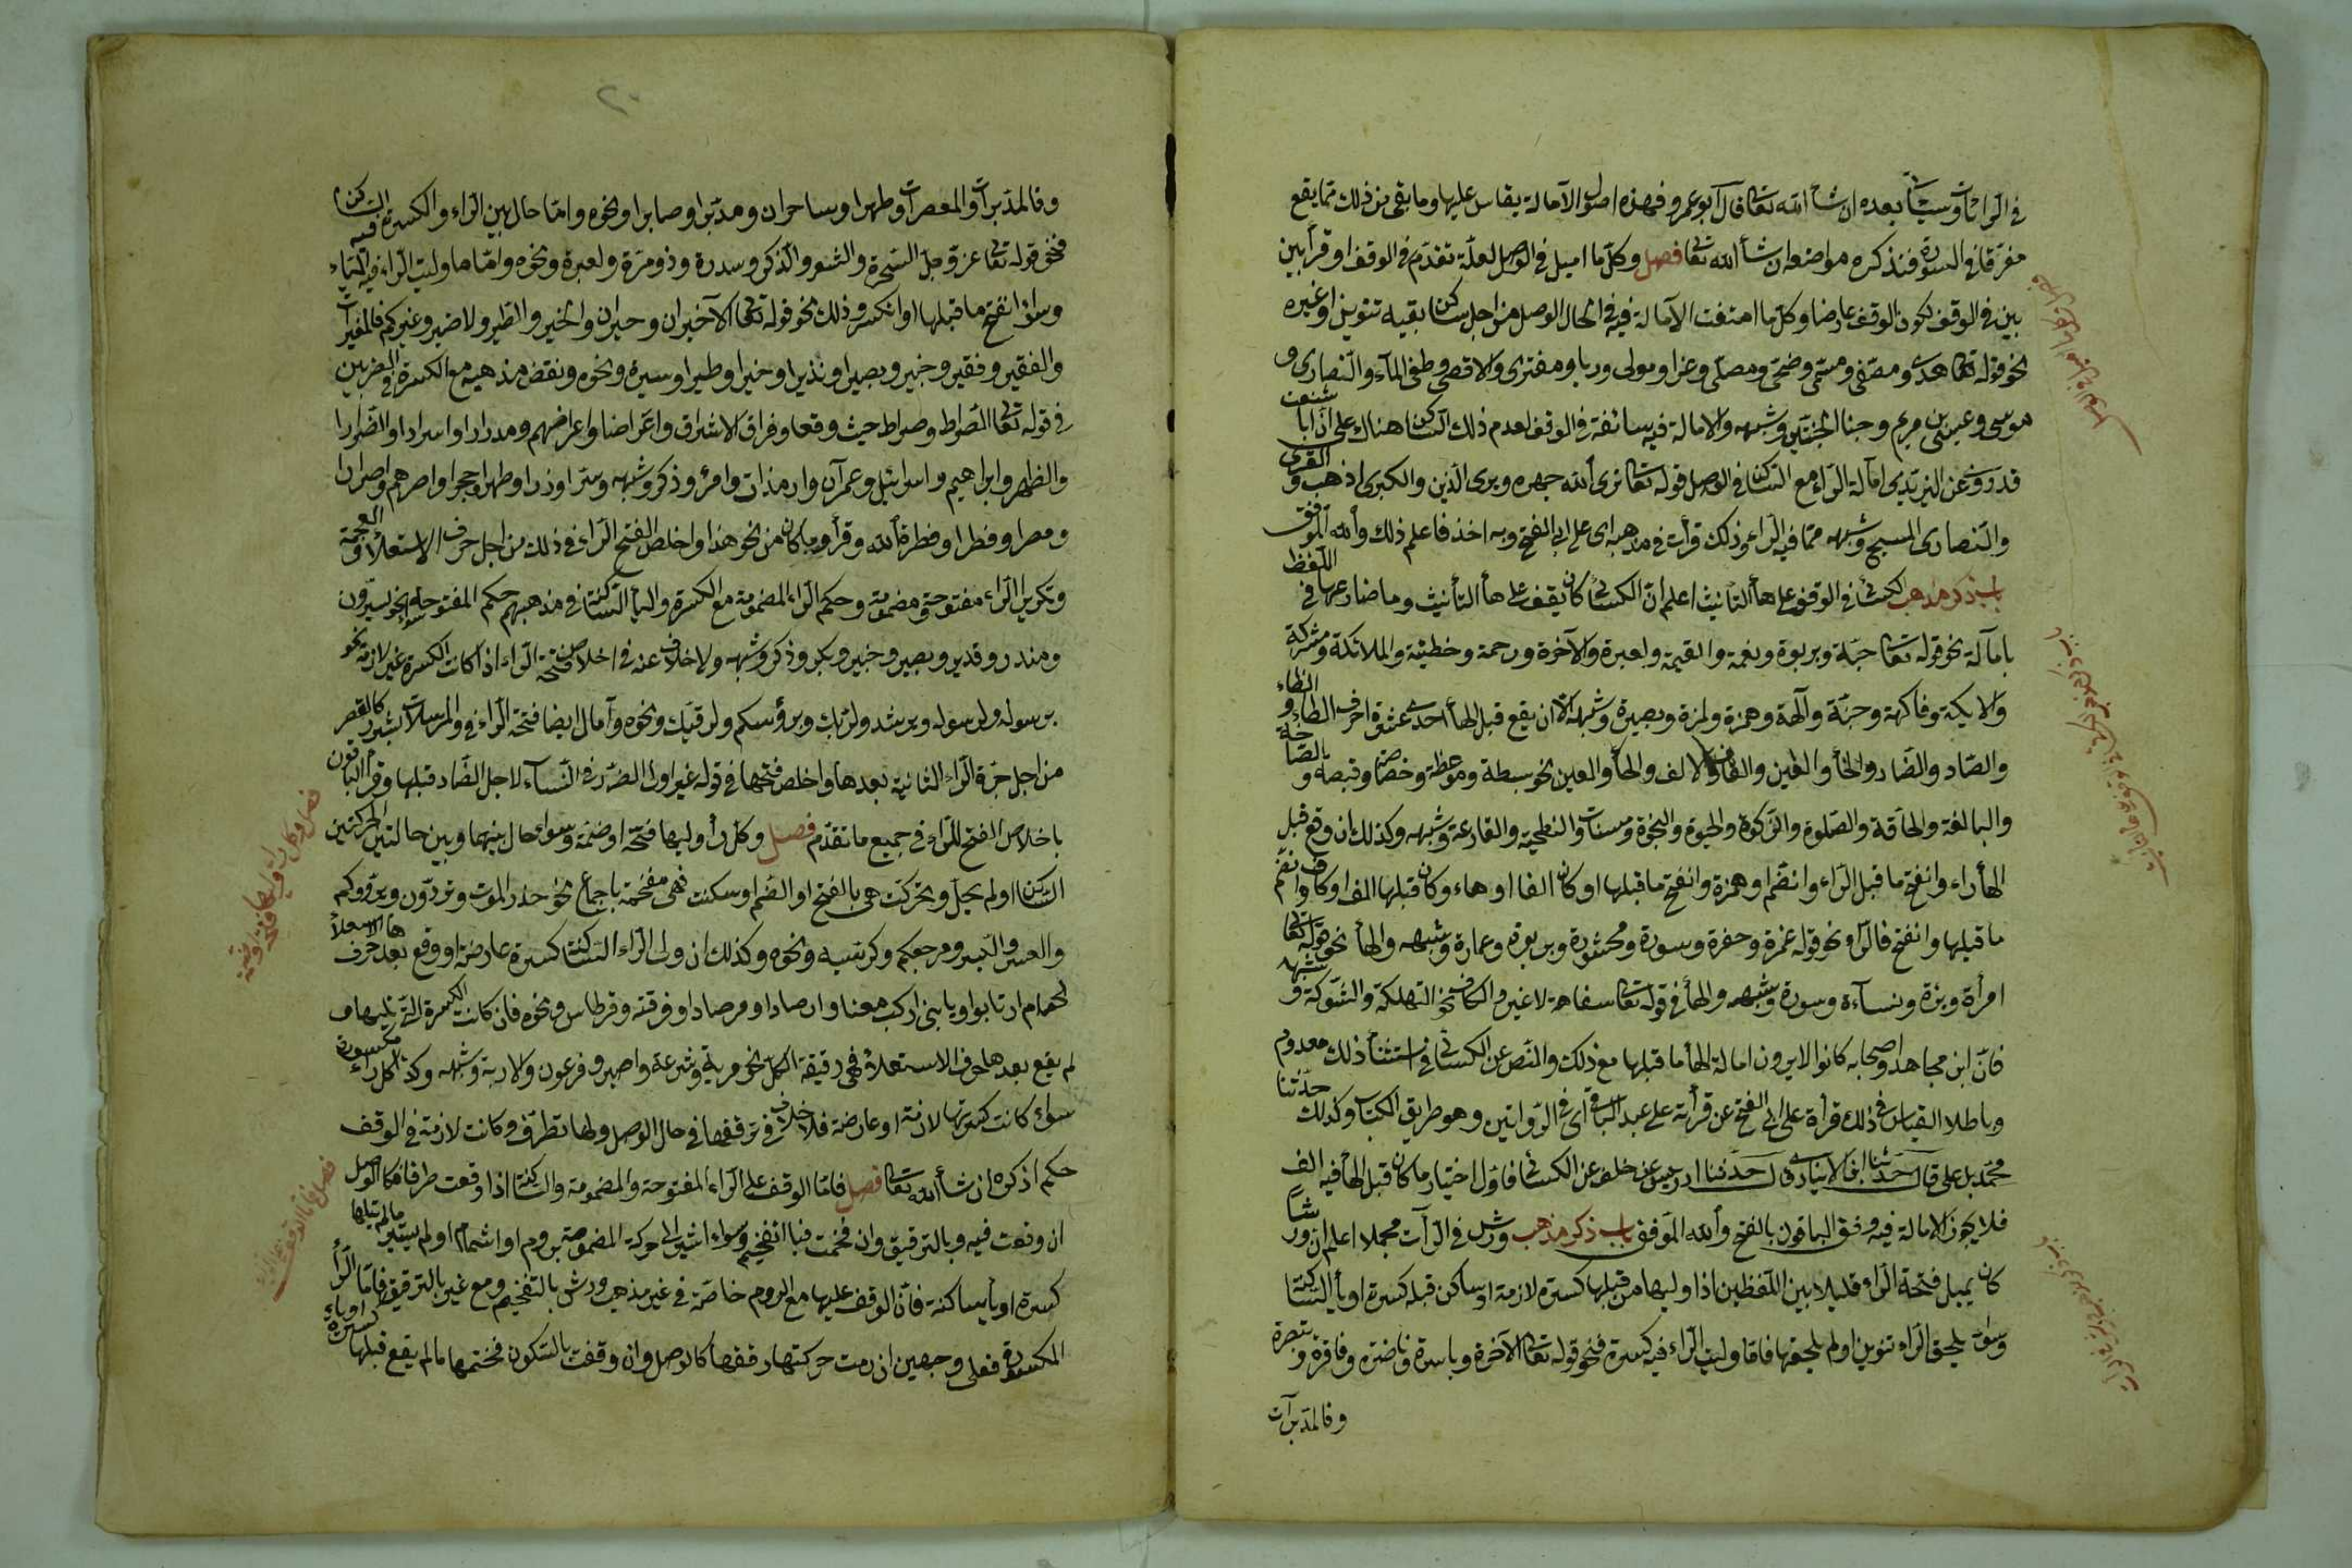 في الراآت وسيأتي بعده ان شاء الله تعالى قال ابو عمرو فهذه اصول الامالة يقاس عليها وما بقي من ذلك مما يقع
مفرقا في السورة فنذكره مواضعه ان شاء الله تعالى فصل وكل ما اميل في الوصل لعلة تقدم في الوقف او قرأ بين
بين في الوقف لكون الوقف عارضا وكل ما امتنعت الامالة فيه في الحال الوصل من اجل ساكن لقيه تنوين او غيره
نحو قوله تعالى هدى ومصفى ومسمى وضحى ومصلى وغزا ومولى وربا ومفترى والاقصى وطغى الماء والنصارى و
موسى وعيسى بن مريم وجنا الجنتين وشبهه والامالة فيه سائغة في الوقف لعدم ذلك الساكن هناك على ان ابا شعيب
قد روى عن اليزيدي امالة الراء مع الساكن في الوصل قوله تعالى نرى الله جهرة ويرى الذين والكبرى اذهب والقرى
والنصارى المسيح وشبهه مما فيه الراء وذلك قرأت في مذهبه اى على ابى الفتح وبه اخذ فاعلم ذلك والله الموفق
باب ذكر مذهب الكسائى في الوقف على هاء التأنيث اعلم ان الكسائى كان يقف على هاء التأنيث وما ضارعها في اللفظ
بامالة نحو قوله تعالى جبلة وبربوة ونعمة والقيمة ولعبرة والآخرة ورحمة وخطيئة والملائكة ومشركة
والايكة وفاكهة وجنة وآلهة وهمزة ولمزة وبصيرة وشبهه الا ان يقع قبل الهاء احدى عشرة احرف الطاء والظاء
والصاد والضاد والخاء والغين والقاف والالف والحاء والعين نحو بسطة وموعظة وخصاصة وقبضة والصاخة
والبالغة والحاقة والصلوة والزكوة والحيوة والنجوة ومنات والنطيحة والقارعة وشبهه وكذلك ان وقع قبل
الهاء راء وانفتح ما قبل الراء وانضم او همزة وانفتح ما قبلها او كان الفا او هاء وكان قبلها الف او كاف وانضم
ما قبلها وانفتح فالراء نحو قوله غمرة وحفرة وسورة ومحشورة وبربرة وعمارة وشبهه والهاء نحو قوله تعالى
امرأة وبرزة ونساءة وسورة وشبهه والهاء في قوله تعالى سفاهة لا غير والكاف نحو التهلكة والشوكة وشبهه
فان ابن مجاهد واصحابه كانوا لا يرون امالة الهاء ما قبلها مع ذلك والنص عن الكسائى في استثناء ذلك معدوم
وباطلا القياس في ذلك قرأة على ابى الفتح عن قرأته على عبد الباقى اى في الروايتين وهو طريق الكتاب وكذلك حدثنا
محمد بن على قال حدثنا ابن الانبارى قال حدثنا ادريس عن خلف عن الكسائى فاول اختيار ما كان قبل الهاء فيه الف
فلا يجوز الامالة فيه وقف الباقون بالفتح والله الموفق باب ذكر مذهب ورش في الراآت مجملا اعلم ان ورشا
كان يميل فتحة الراء قليلا بين اللفظين اذا وليها من قبلها كسرة لازمة او ساكن قبله كسرة او ياء الساكنة
وسواء يلحق الراء تنوين او لم يلحقها فاما وليت الراء فيه كسرة فنحو قوله تعالى الآخرة وباسرة وناضرة وفاقرة وتبصرة
وفالمدبرات
وفالمدبرات والمعصرات وطهرا وساحران ومدبرا وصابرا ونحوه واما حال بين الراء والكسرة فيه الساكن
فنحو قوله تعالى عز وجل السحرة والشعر والذكر وسدرة وذو مرة ولعبرة ونحوه واما ما وليت الراء فيه الياء
وسواء انفتح ما قبلها او انكسر وذلك نحو قوله تعالى الآخيران وحيران والخير والطير ولا ضير وغيركم فالمغيرات
والفقير وفقير وخبير وبصيرا ونذيرا وخيرا وطيرا وسيرة ونحوه ونقض مذهبه مع الكسرة في الضربين
في قوله تعالى الصراط وصراط حيث وقعا وفراق الاشراق واعراضا واعراضهم ومدرارا واسرارا والضرارا
والظهر وابراهيم واسرائيل وعمران وارم ذات وامرء وذكر وشبهه وسترا وذرا وطهرا وحجرا واصرهم واصرارا
ومصرا وفطرا وفطرة الله وقرأ وما كان من نحو هذا واخلص الفتح الراء في ذلك من اجل حرف الاستعلاء والعجمة
وتكرير الراء مفتوحة ومضمومة وحكم الراء المضمومة مع الكسرة والياء الساكنة في مذهبهم حكم المفتوحة سواء نحو يسرون
ومنذر وقدير وبصير وخبير وبكر وذكر وشبهه ولا خلاف عنه في اخلاص فتحة الراء اذا كانت الكسرة غير لازمة نحو
برسوله ولرسوله وبرشد ولربك وبرؤسكم ولرقيك ونحوه وامال ايضا فتحة الراء في والمرسلات بشرر كالقصر
من اجل جرة الراء الثانية بعدها واخلص فتحها في قوله غير اولى الضرر في النساء لاجل الضاد قبلها وقرأ الباقون
باخلاص الفتح للراء في جميع ما تقدم فصل وكل راء وليها فتحة او ضمة وسواء حال بينهما وبين حالتين الحركتين
الساكن او لم يحل وتحركت هي بالفتح او الضم او سكنت فهي مفخمة باجماع نحو حذر الموت وتردون ويردوكم
والعسر واليسر ومرجعكم وكرسيه ونحوه وكذلك ان ولى الراء الساكنة كسرة عارضة او وقع بعدها حرف الاستعلاء
نحو ام ارتابوا ويا بنى اركب معنا وارصادا ومرصادا وفرقة وقرطاس ونحوه فان كانت الكسرة التي تليها ف
لم يقع بعدها حرف الاستعلاء فهى رقيقة الكل نحو مرية وشرعة واصبر وفرعون والاربة وشبهه وكذا كل راء مكسورة
سواء كانت كسرتها لازمة او عارضة فلا خلاف في ترقيقها في حال الوصل ولها تطرف وكانت لازمة في الوقف
حكم اذكره ان شاء الله تعالى فصل فاما الوقف على الراء المفتوحة والمضمومة والساكنة اذا وقعت طرفا فكالوصل
ان وقعت فيه وبالترقيق وان فخمت فبا التفخيم وسواء اشير الى حركة المضمومة بروم او اشمام او لم يشير ما لم تيلها
كسرة او ياء ساكنة فان الوقف عليها مع الروم خاصة في غير مذهب ورش بالتفخيم ومع غير بالترقيق فاما الراء
المكسورة فعلى وجهين ان رمت حركتها رققها كالوصل وان وقفت بالسكون فختمها ما لم يقع قبلها كسرة او ياء